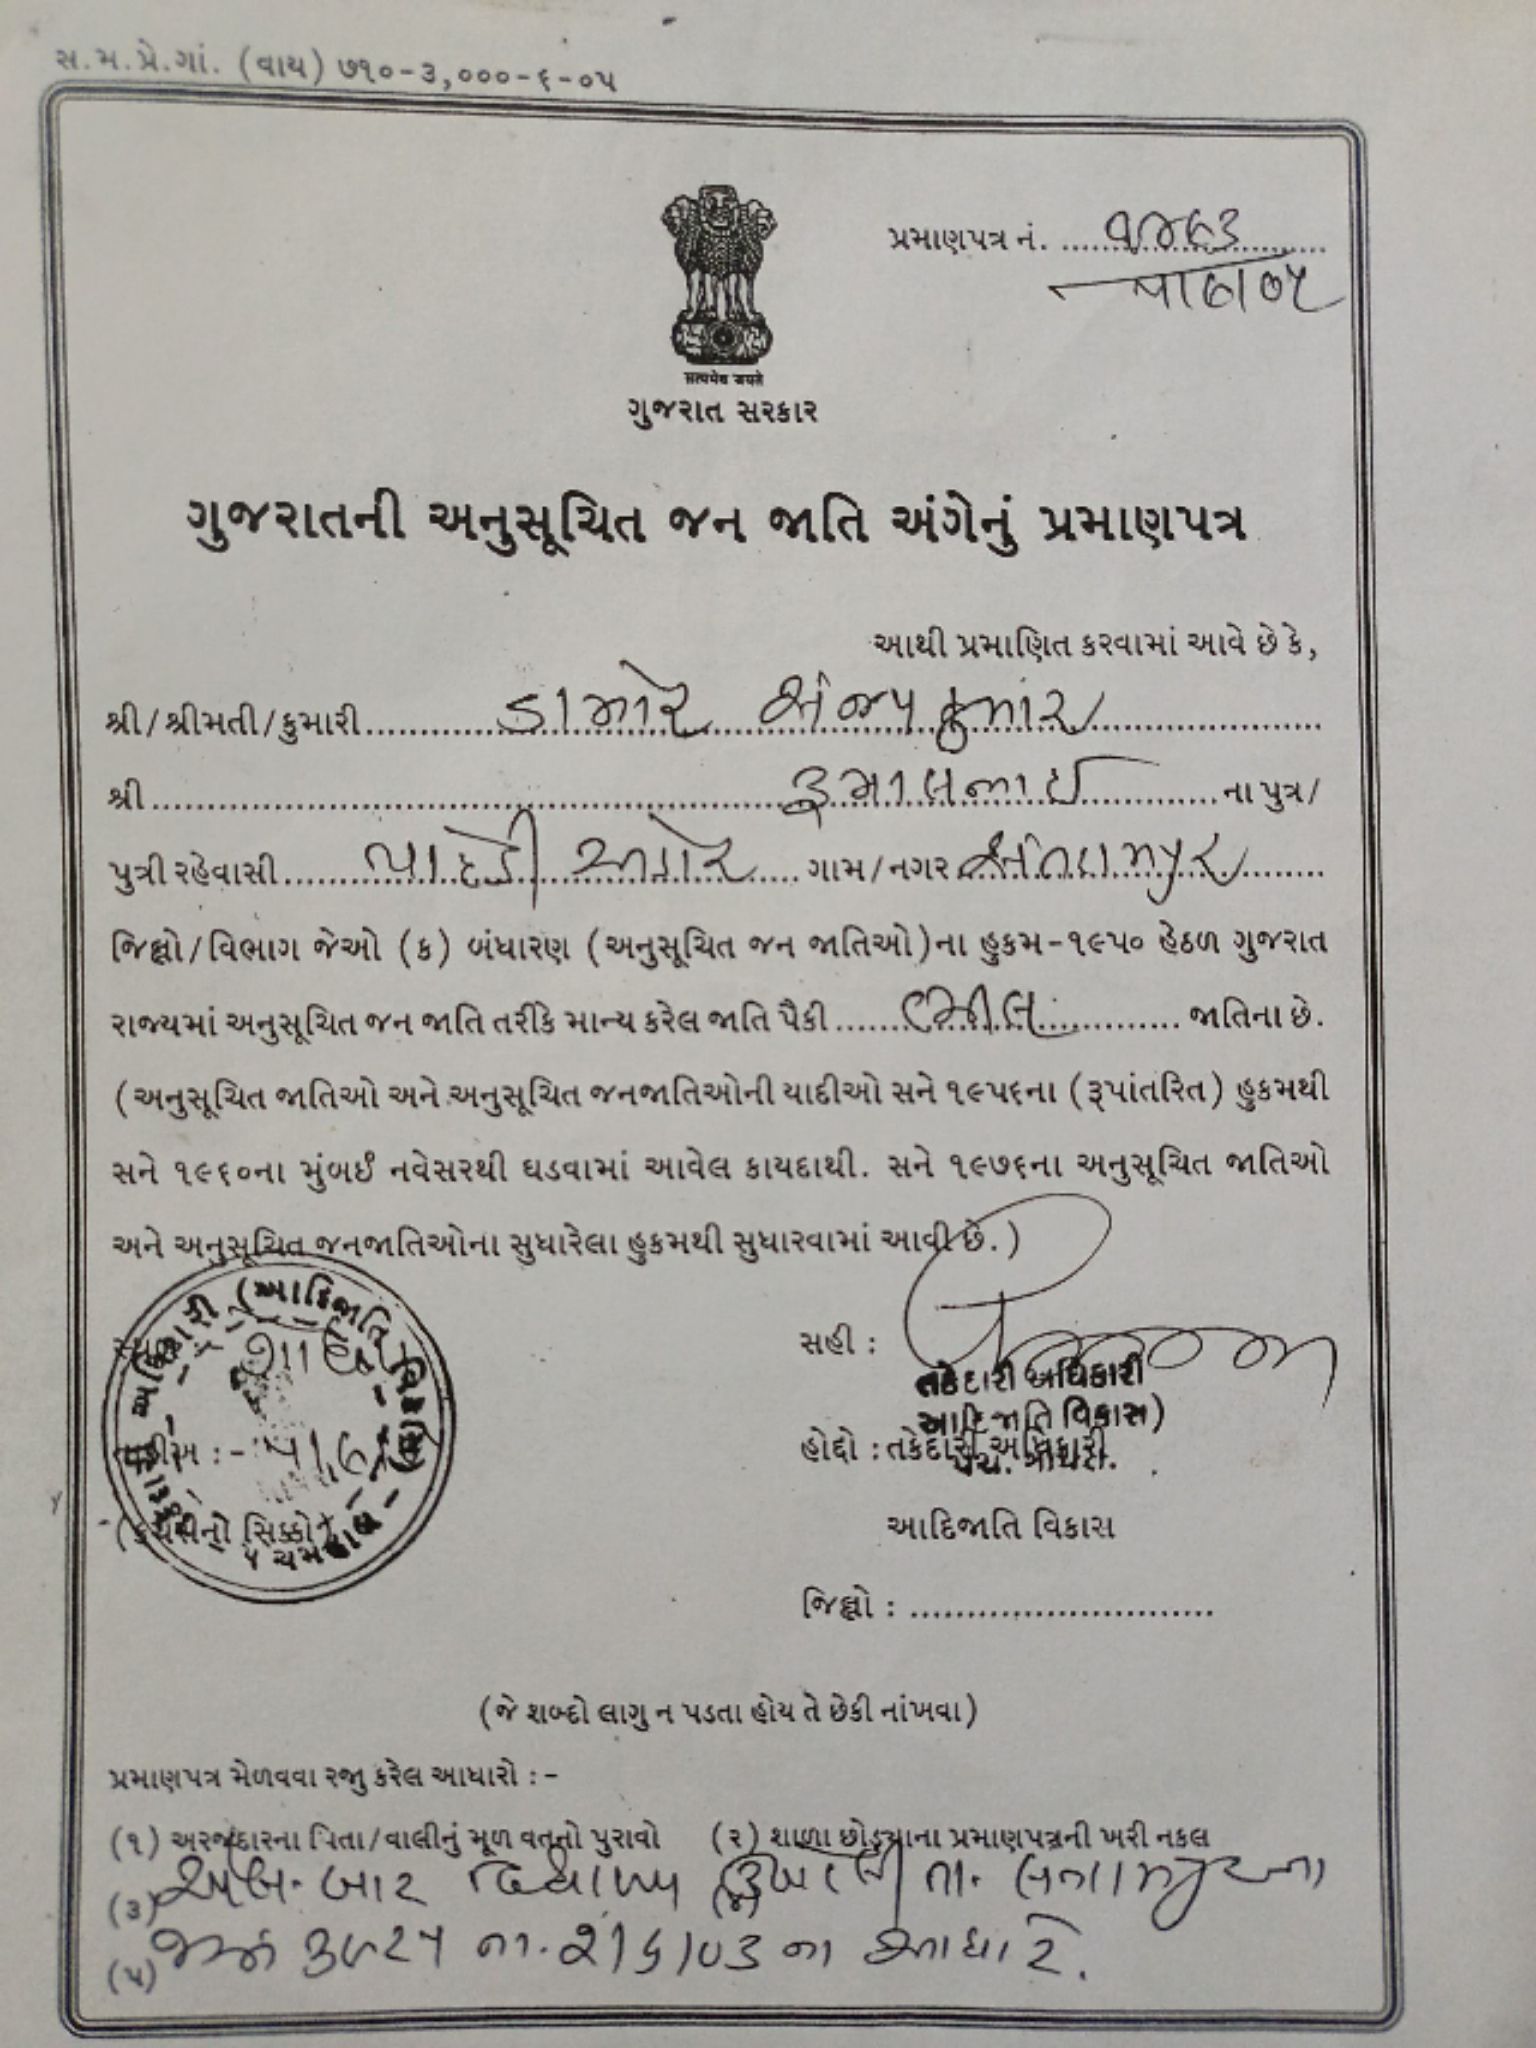 સ.મ.પ્રે.ગાં. (વાય) ૭૧૦-૩,૦૦૦-૬-૦૫
પ્રમાણપત્ર નં.
सत्यमेव जयते
ગુજરાત સરકાર
ગુજરાતની અનુસૂચિત જન જાતિ અંગેનું પ્રમાણપત્ર
આથી પ્રમાણિત કરવામાં આવે છે કે,
શ્રી/શ્રીમતી/કુમારી ડામોર સંજયકુમાર
શ્રી રૂમાલભાઈ ના પુત્ર/
પુત્રી રહેવાસી પાદેડી અડોર ગામ/નગર સંતરામપુર
જિલ્લો/વિભાગ જેઓ (ક) બંધારણ (અનુસૂચિત જન જાતિઓ)ના હુકમ-૧૯૫૦ હેઠળ ગુજરાત
રાજ્યમાં અનુસૂચિત જન જાતિ તરીકે માન્ય કરેલ જાતિ પૈકી ભીલ જાતિના છે.
(અનુસૂચિત જાતિઓ અને અનુસૂચિત જનજાતિઓની યાદીઓ સને ૧૯૫૬ના (રૂપાંતરિત) હુકમથી
સને ૧૯૬૦ના મુંબઈ નવેસરથી ઘડવામાં આવેલ કાયદાથી. સને ૧૯૭૬ના અનુસૂચિત જાતિઓ
અને અનુસૂચિત જનજાતિઓના સુધારેલા હુકમથી સુધારવામાં આવી છે.)
(આદિજાતિ
સહી :
તકેદારી અધિકારી
આદિજાતિ વિકાસ)
હોદ્દો : તકેદારી અધિકારી
(કચેરીનો સિક્કો)
આદિજાતિ વિકાસ
જિલ્લો :
(જે શબ્દો લાગુ ન પડતા હોય તે છેકી નાંખવા)
પ્રમાણપત્ર મેળવવા રજુ કરેલ આધારો :-
(૧) અરજદારના પિતા/વાલીનું મૂળ વતનનો પુરાવો (૨) શાળા છોડ્યાના પ્રમાણપત્રની ખરી નકલ
(૩)
(૫) ના આધારે.